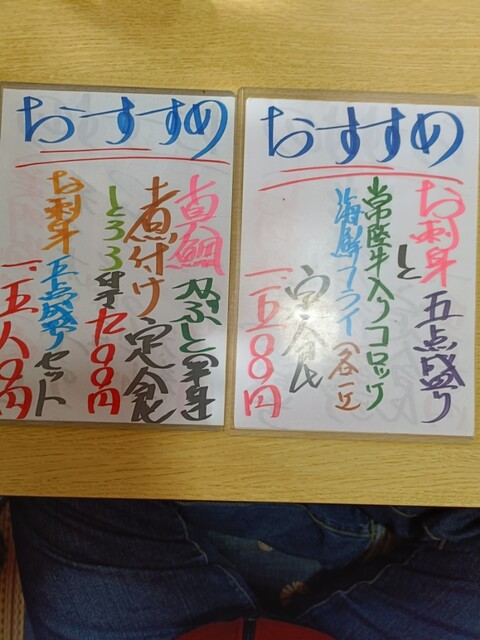 おすすめ
真鯛 かぶと
煮付け定食
とろろ
お刺身五点盛りセット
一、五八〇円
おすすめ
お刺身五点盛り
と
常陸牛入りコロッケ
海鮮フライ
定食
一、五八〇円